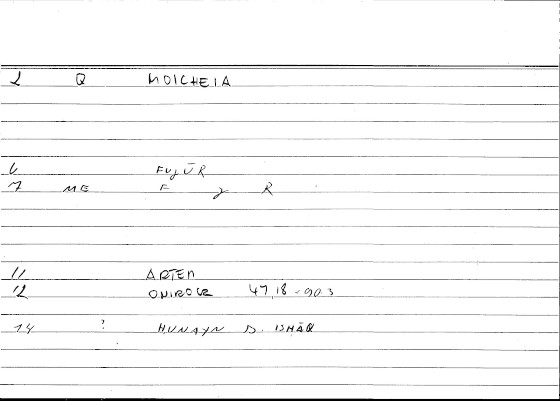 2 Q MOICHEIA
6 FUǧŪR
7 ME F ǧ R
11 ARTEM
12 ONIROCR 47,18 - 903
14 ? HUNAYN B. ISHĀQ